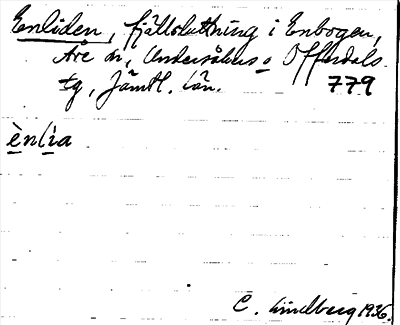 Enliden, fjällsluttning i Enbogen,
Åre sn, Undersåkers o Offerdals
tg, Jämtl. län. 779
ènlia
C. Lindberg 1936.